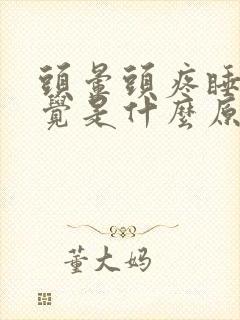 頭暈頭疼睡
覺是什麼原
董大妈